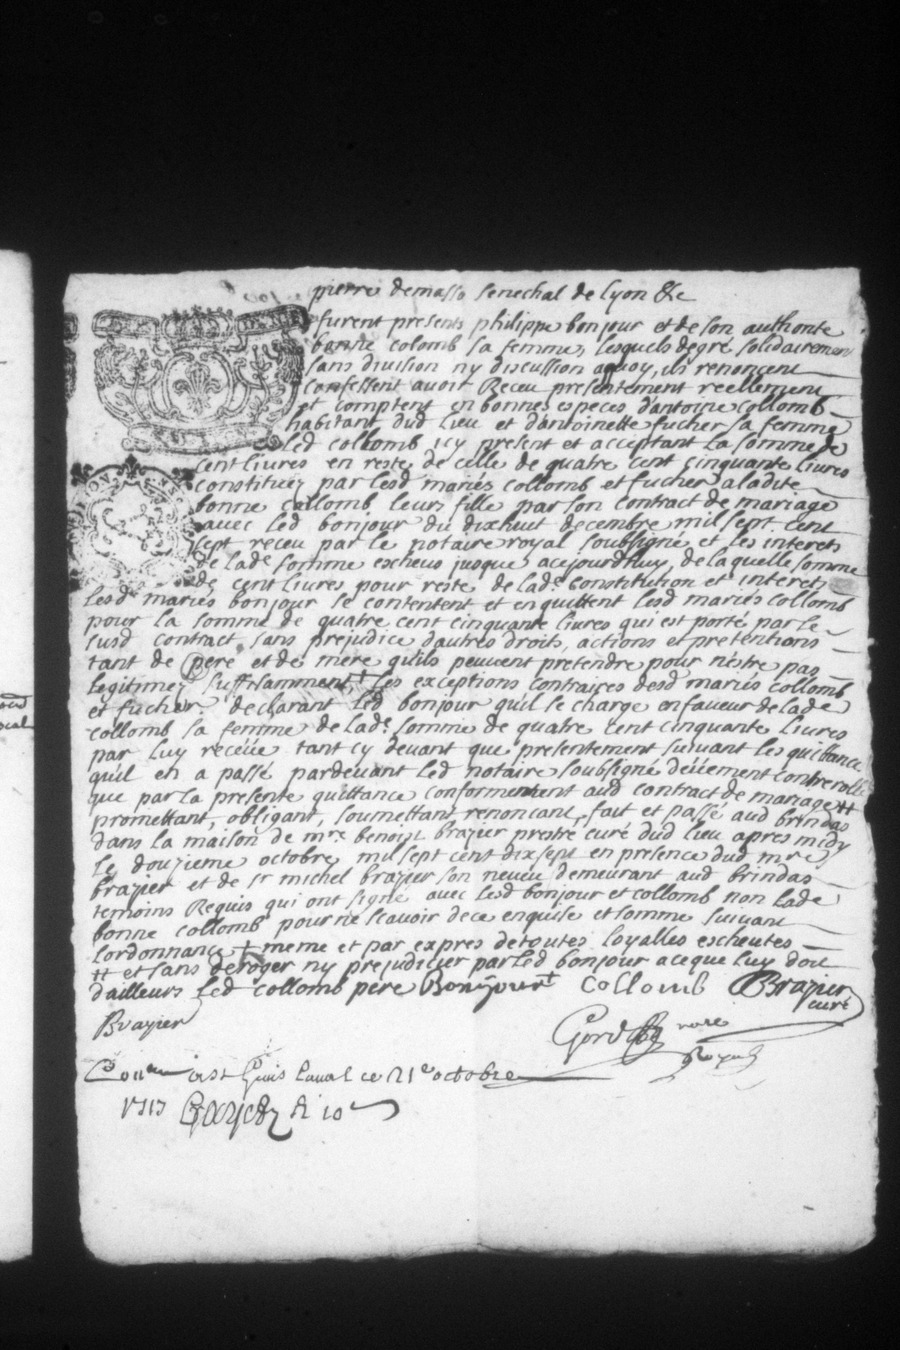 pierre demasso senechal de lyon &c
furent presents philippe bonjour et de son authorite
bonne colomb sa femme, lesquels de gré solidairement
sans division ny discussion aquoy, ils renoncent
confessent avoir Receu presentement reellement
et comptent en bonnes especes d'antoine collomb
habitant dud lieu et d'antoinette fucher sa femme
led collomb icy present et acceptant La somme de
cent livres en reste de celle de quatre cent cinquante livres
constituéz par lesd mariés collomb et fucher a ladite
bonne collomb leurs fille par son contract de mariage
avec led bonjour du dixhuit decembre mil sept cent
sept receu par le notaire royal soubsigné et les interets
de lad.e somme escheus jusque aujourdhuy, de laquelle somme
de cent livres pour reste de lad.e constitution et interets
lesd mariés bonjour se contentent et en quittent lesd mariés collomb
pour la somme de quatre cent cinquante livres qui est porté par le
susd contract, sans prejudice d'autres droits, actions et pretentions
tant de pere et de mere qu'ils peuvent pretendre pour n'estre pas
legitimez suffisamment + les exceptions contraires desd mariés collomb
et fucher. declarant led bonjour qu'il se charge en faveur de lade
collomb sa femme de lade somme de quatre cent cinquante livres
par luy receüe tant cy devant que presentement suivant les quittance
qu'il en a passé pardevant led notaire soubsigné deüement controrollé
que par la presente quittance conformement aud contract de mariage ++
promettant, obligant, soumettant, renoncant, fait et passé aud brindas
dans la maison de mre benoizt brazier prestre curé dud lieu apres midy
le douzieme octobre mil sept cent dix sept en presence dud mre
brazier et de sr michel brazier son neveu demeurant aud brindas
temoins Requis qui ont signé avec lesd bonjour et collomb non lade
bonne collomb pour ne scavoir de ce enquise et somme suivant
l'ordonnance + meme et par expres de toutes loyalles escheutes
++ et sans deroger ny prejudicier par led bonjour a ce que luy doit
d'ailleurs led collomb pere Bonjour + collomb Brazier
curé
Brazier
nore
Royal
Laval ce 21e octobre
1717